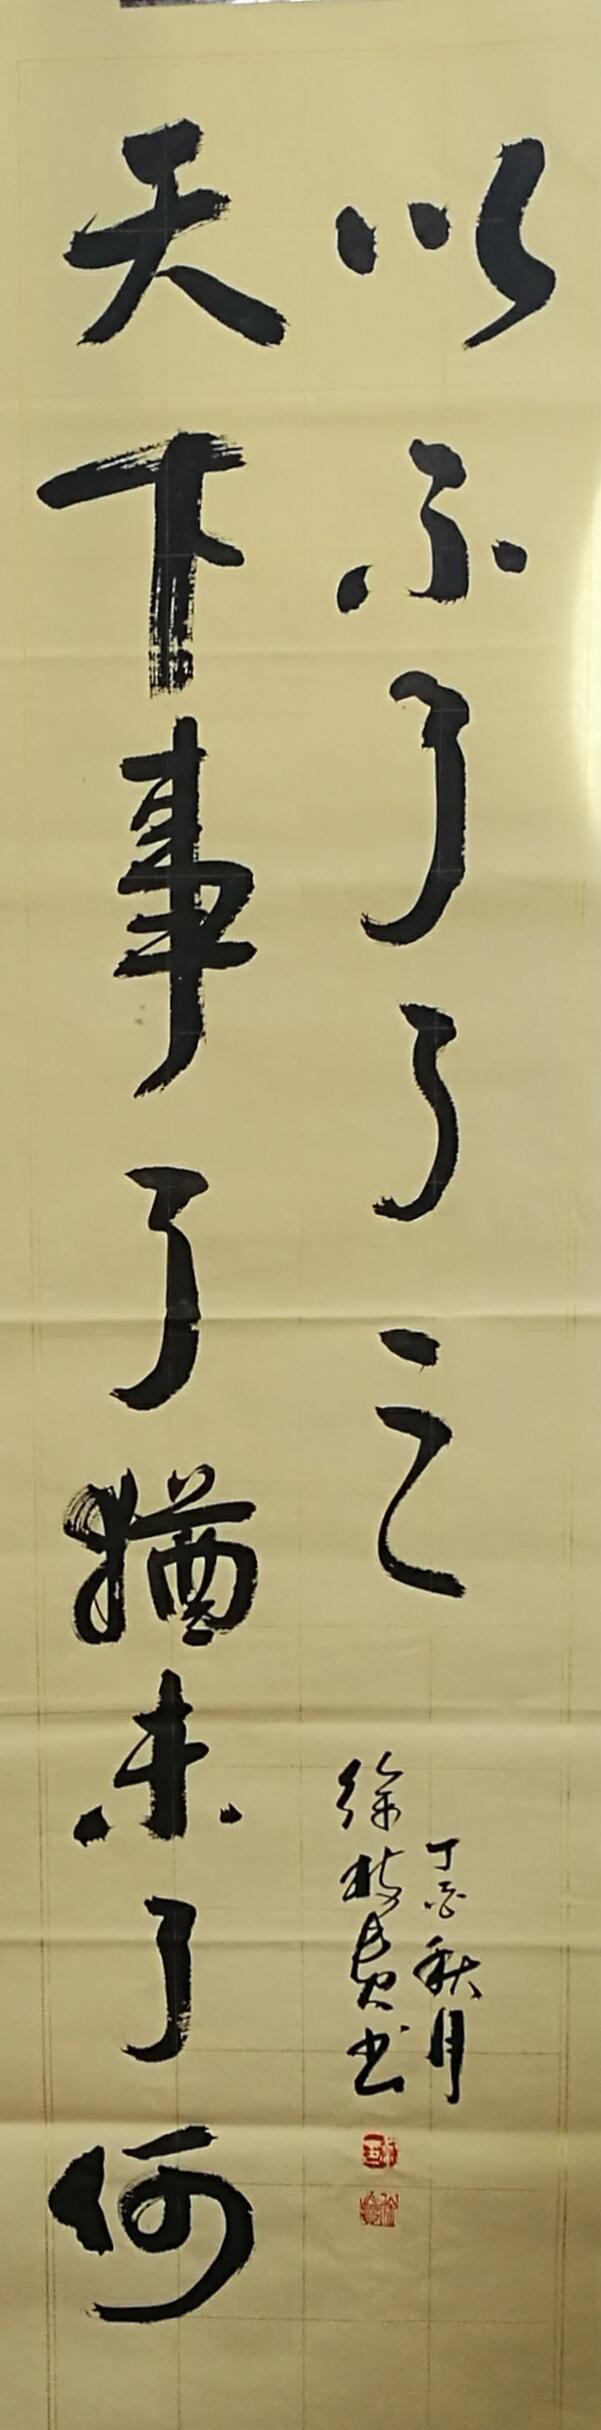 天下事了猶未了何
以不了了之
丁酉秋月
徐书